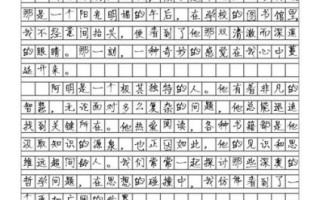 那是一个阳光明媚的午后，在学校的图书馆里，
我不经意间抬头，便看到了他那双清澈而深邃
的眼睛。那一刻，一种奇妙的感觉在我心中蔓
延开来。
阿明是一个极其独特的人。他有着非凡的
智慧，无论面对多么复杂的问题，他总能迅速
找到关键所在。他热爱阅读，各种书籍都是他
汲取知识的源泉，也正因如此，他的见识和思
维远超同龄人。我们常常一起探讨那些深奥的
哲学问题，在思想的碰撞中，我仿佛看到了一